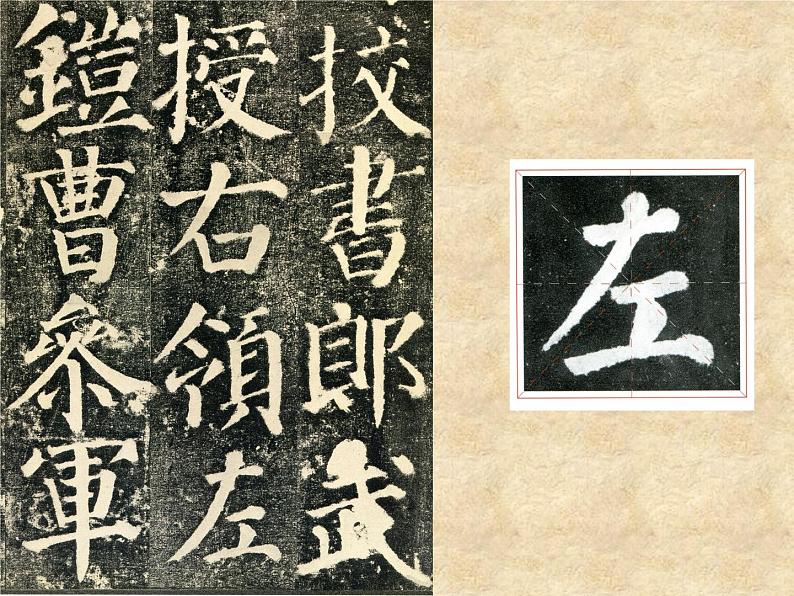 挍書郎武
授右領左
鎧曹參軍
左